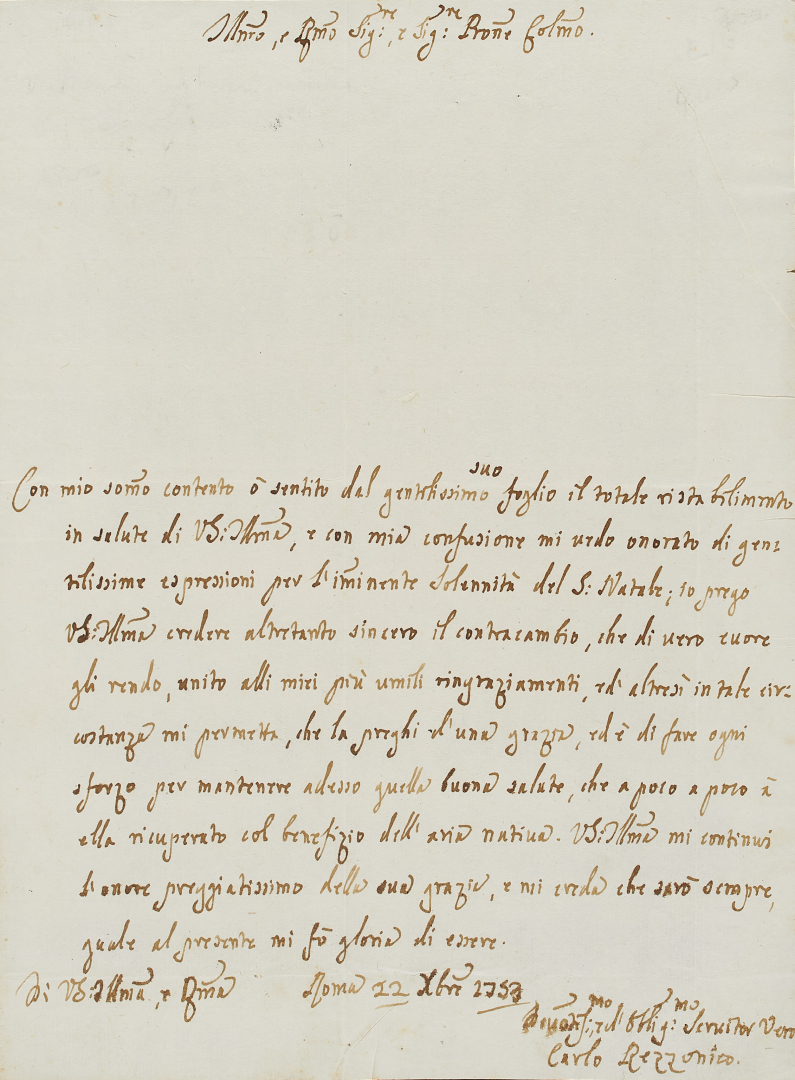 Illmo, e Rmo Sig:re, e Sig:re Prone Colmo.
Con mio somo contento ò sentito dal gentilissimo suo foglio il totale ristabilimento
in salute di VS: Illma, e con mia confusione mi vedo onorato di gen:
tilissime espressioni per l'iminente Solennità del S: Natale; io prego
VS: Illma credere altretanto sincero il contracambio, che di vero cuore
gli rendo, unito alli miei più umili ringraziamenti, ed' altresì in tale cir:
costanza mi permetta, che la preghi d'una grazia, ed è di fare ogni
sforzo per mantenere adesso quella buona salute, che a poco a poco à
ella ricuperato col benefizio dell'aria nativa. VS: Illma mi continui
l'onore preggiatissimo della sua grazia, e mi creda che sarò sempre,
quale al presente mi fò gloria di essere.
Di VS: Illma, e Rma Roma 22 Xbre 1753
Devotis:mo, ed' Oblig:mo Servitor Vero
Carlo Rezzonico.